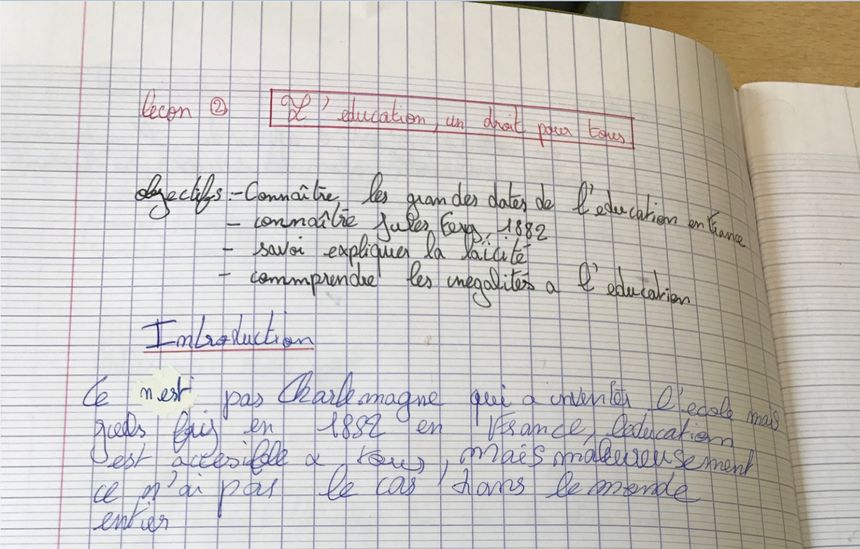 leçon ②  L'education, un droit pour tous
objectifs: - Connaître, les grandes dates de l'education en France
- connaître Jules Ferry, 1882
- savoi expliquer la laïcité
- commprendre les inegalités a l'education
Introduction
Ce n'est pas Charlemagne qui a inventer l'ecole mais
en 1882 en France, l'education
est accesible a tous, mais maleureusement
ce n'ai pas le cas dans le monde
entier